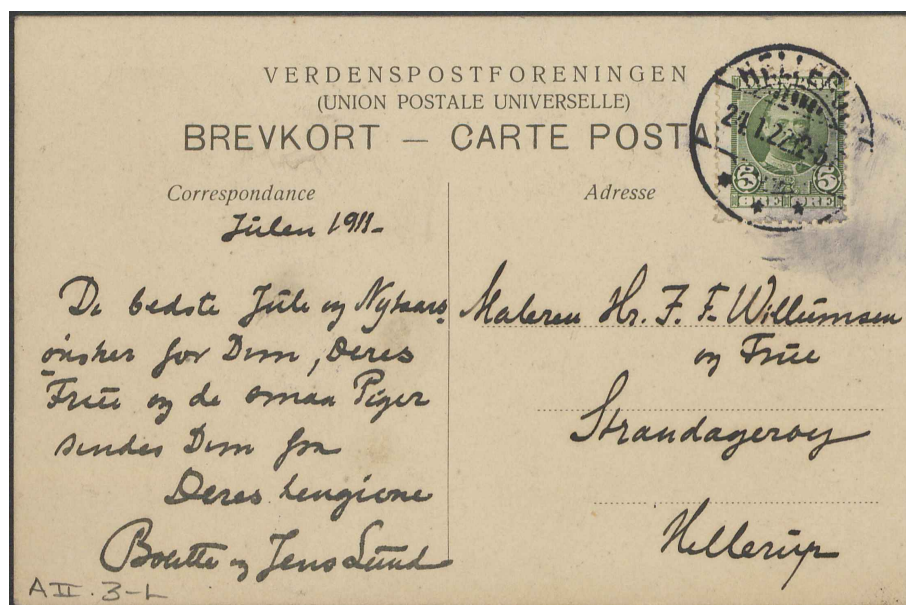 VERDENSPOSTFORENINGEN
(UNION POSTALE UNIVERSELLE)
BREVKORT — CARTE POSTA
Correspondance
Julen 1911-
De bedste Jule og Nytaars
ønsker for Dem, Deres
Frue og de smaa Piger
sendes Dem fra
Deres hengivne
og Jens Lund
A II. 3-L
Adresse
HELLERUP
24.1.22 2-5
5 5
ØRE ØRE
Maleren Hr. J. F. Willumsen
og Frue
Strandagervej
Hellerup